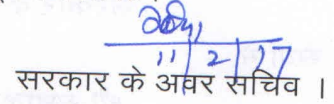 11/2/17
सरकार के अवर सचिव ।